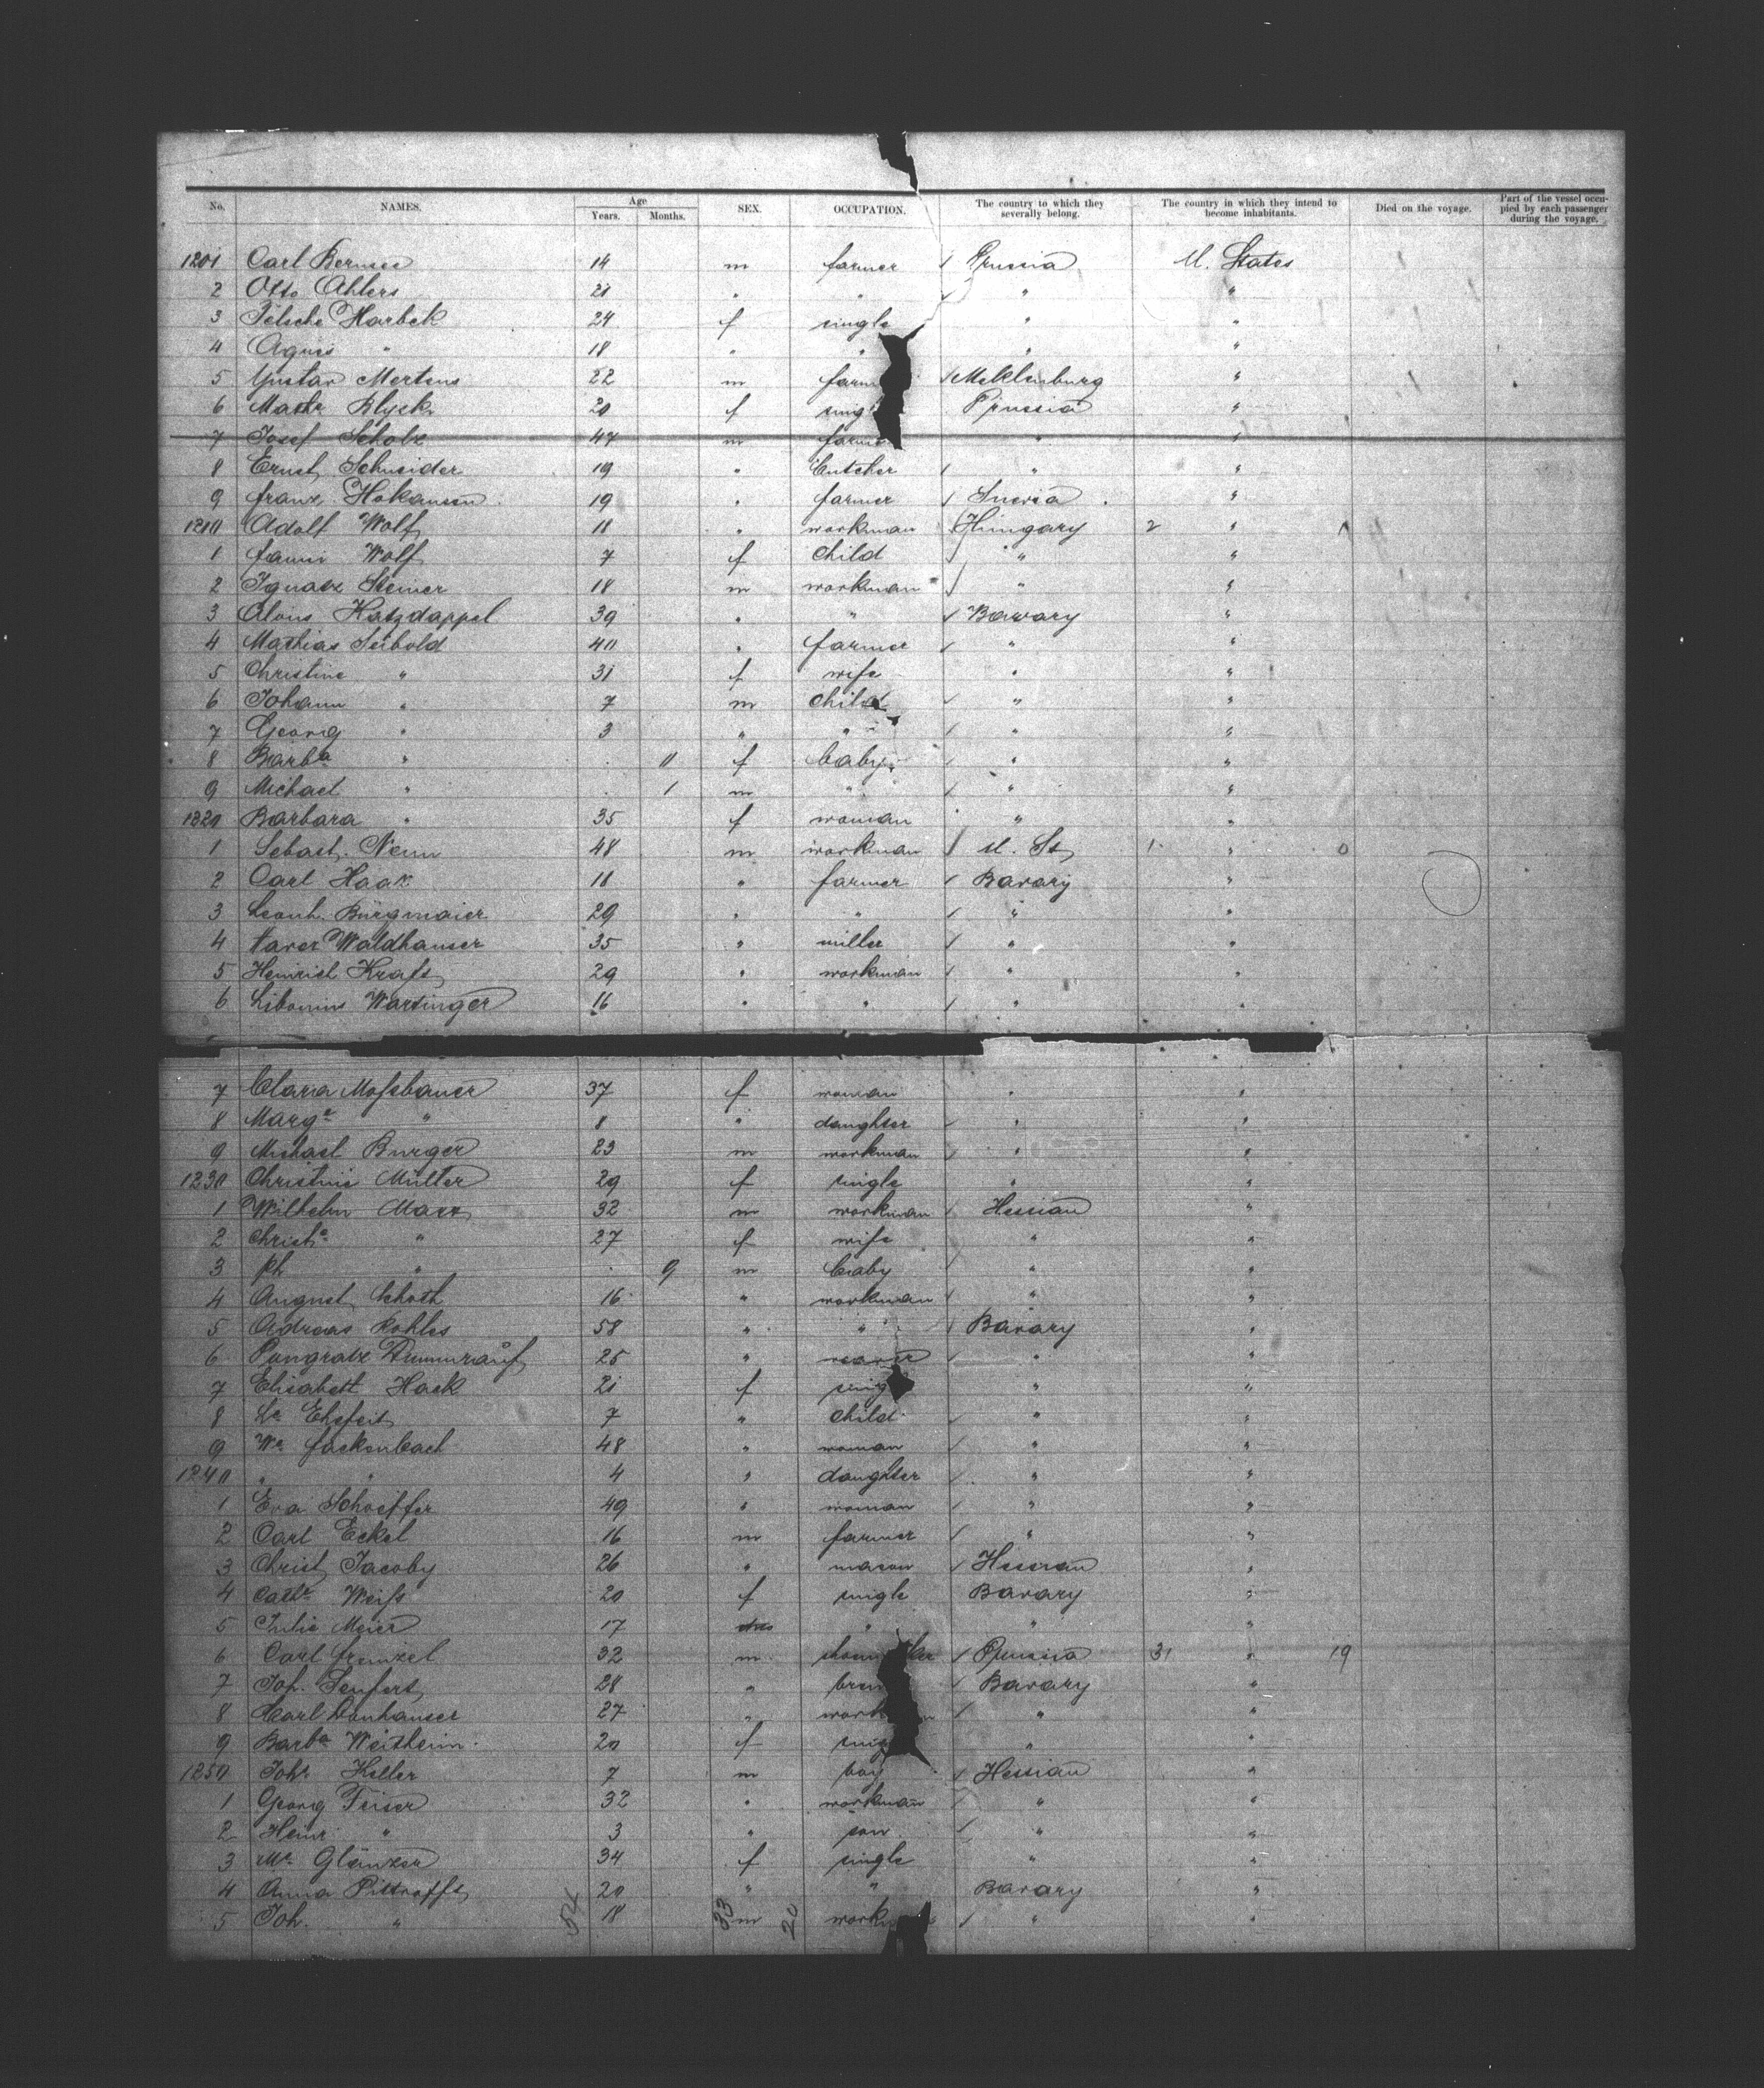 No. NAMES. Age Years. Months. SEX. OCCUPATION. The country to which they severally belong. The country in which they intend to become inhabitants. Died on the voyage. Part of the vessel occupied by each passenger during the voyage.
1201 Carl 14 m farmer / Prussia U. States
2 Otto Ahlers 21 " " / " "
3 Telsche Harbek 24 f single " "
4 Agnes " 18 " " " "
5 Gustav Mertens 22 m farm / Meklenburg "
6 20 f singl Prussia "
7 Josef Scholz 47 m farme " "
8 Ernst Schneider 19 " butcher / " "
9 Franz Hokansen 19 " farmer / Suecia "
1210 Adolf Wolf 18 " workman Hungary 2 "
1 Fanni Wolf 7 f child " "
2 Ignatz Steiner 18 m workman " "
3 Alois Katzdappel 39 " " / Bavary "
4 Mathias Seibold 40 " farmer / " "
5 Christine " 31 f wife " "
6 Johann " 7 m child / " "
7 Georg " 3 " " / " "
8 Barba " 11 f baby / " "
9 Michael " 1 m " / " "
1220 Barbara " 35 f woman " "
1 Sebast. Nenn 48 m workman / U. St. 1 " 0
2 Carl Haak 18 " farmer / Bavary "
3 Leonh. Bürgmaier 29 " " / " "
4 Xaver Waldhauser 35 " miller / " "
5 Heinrich Kraft 29 " workman / " "
6 Liborius Wartinger 16 " " / " "
7 Clara Moßbauer 37 f woman " "
8 Marga " 8 " daughter / " "
9 Michael Burger 23 m workman / " "
1230 Christine Müller 29 f single " "
1 Wilhelm Marx 32 m workman / Hessian "
2 Christe " 27 f wife " "
3 Ph " 9 m baby " "
4 August Schott 16 " workman / " "
5 Andreas Kohles 58 " " / Bavary "
6 Pangratz Dummrauf 25 " weaver / " "
7 Elisabett Hack 21 f sing " "
8 7 " child / " "
9 We Fackenbach 48 " woman / " "
1240 " " 4 " daughter / " "
1 Eva Schoeffer 49 " woman / " "
2 Carl Eckel 16 m farmer / " "
3 Christ Jacoby 26 " mason / Hessian "
4 Cathe Weiß 20 f single Bavary "
5 Julie Meier 17 " " "
6 Carl Frenzel 32 m shoem ker / Prussia 31 " 19
7 Joh. Seufert 28 " brew / Bavary "
8 Carl Donhauser 27 " work n / " "
9 Barba Weitheim 20 f sing " "
1250 Johs Keller 7 m boy / Hessian "
1 Georg Feiser 32 " workman / " "
2 Heinr " 3 " son / " "
3 Me Glänzer 34 f single " "
4 Anna Pittrofft 20 " " Bavary "
5 Joh. " 54 18 33 m 20 work / " "